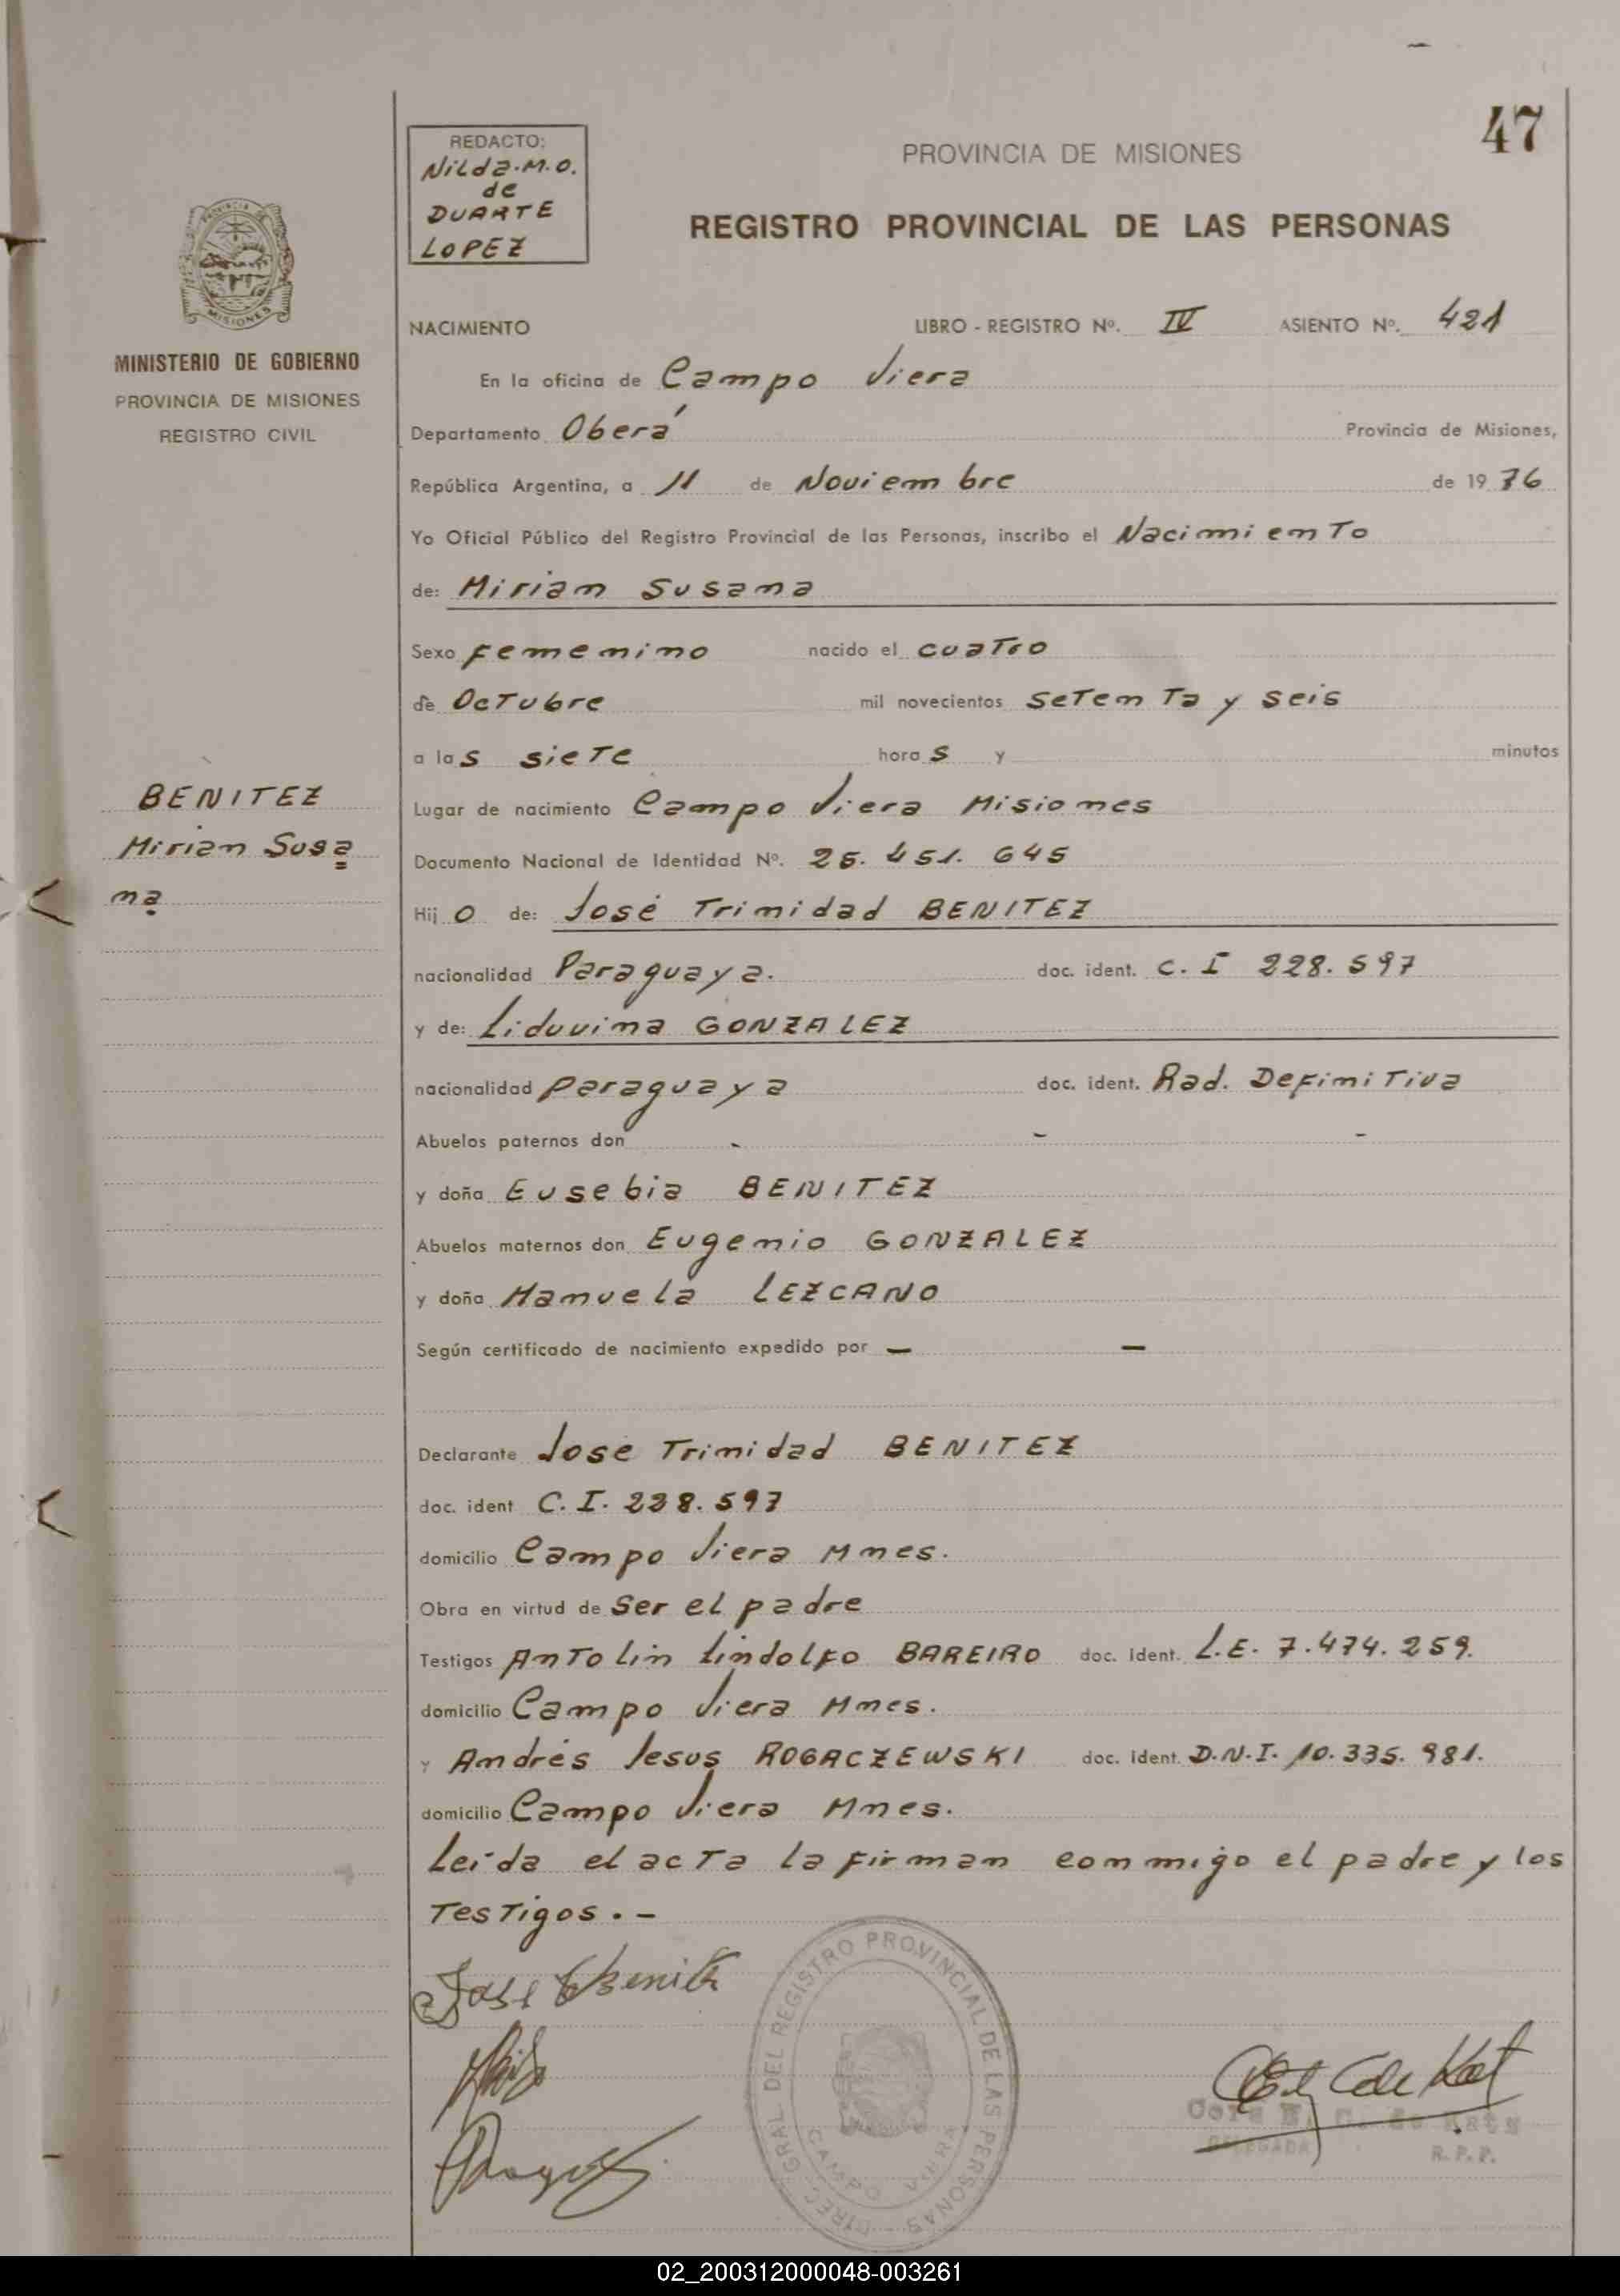 47
REDACTO:
Nilda.M.O.
de
DUARTE
LOPEZ
PROVINCIA DE MISIONES
REGISTRO PROVINCIAL DE LAS PERSONAS
PROVINCIA DE
MISIONES
MINISTERIO DE GOBIERNO
PROVINCIA DE MISIONES
REGISTRO CIVIL
NACIMIENTO LIBRO - REGISTRO Nº. IV ASIENTO Nº. 421
En la oficina de Campo Viera
Departamento Oberá Provincia de Misiones,
República Argentina, a 11 de Noviembre de 19 76
Yo Oficial Público del Registro Provincial de las Personas, inscribo el Nacimiento
de: Miriam Susana
Sexo Femenino nacido el cuatro
de Octubre mil novecientos setenta y seis
a las siete horas y minutos
BENITEZ
Mirian Susa
na
Lugar de nacimiento Campo Viera Misiones
Documento Nacional de Identidad Nº. 25.451.645
Hijo de: José Trinidad BENITEZ
nacionalidad Paraguaya. doc. ident. C. I 228.597
y de: Liduvina GONZALEZ
nacionalidad Paraguaya doc. ident. Rad. Definitiva
Abuelos paternos don - - -
y doña Eusebia BENITEZ
Abuelos maternos don Eugenio GONZALEZ
y doña Manuela LEZCANO
Según certificado de nacimiento expedido por — —
Declarante José Trinidad BENITEZ
doc. ident C. I. 228.597
domicilio Campo Viera Mnes.
Obra en virtud de Ser el padre
Testigos Antolin Lindolfo BAREIRO doc. ident. L.E. 7.474.259.
domicilio Campo Viera Mnes.
y Andrés Jesus ROGACZEWSKI doc. ident. D.N.I. 10.335.981.
domicilio Campo Viera Mnes.
Leída el acta la firman conmigo el padre y los
Testigos.-
Jose Benit
DIREC. GRAL. DEL REGISTRO PROVINCIAL DE LAS PERSONAS
CAMPO VIERA
DELEGADA
R.P.P.
02_200312000048-003261